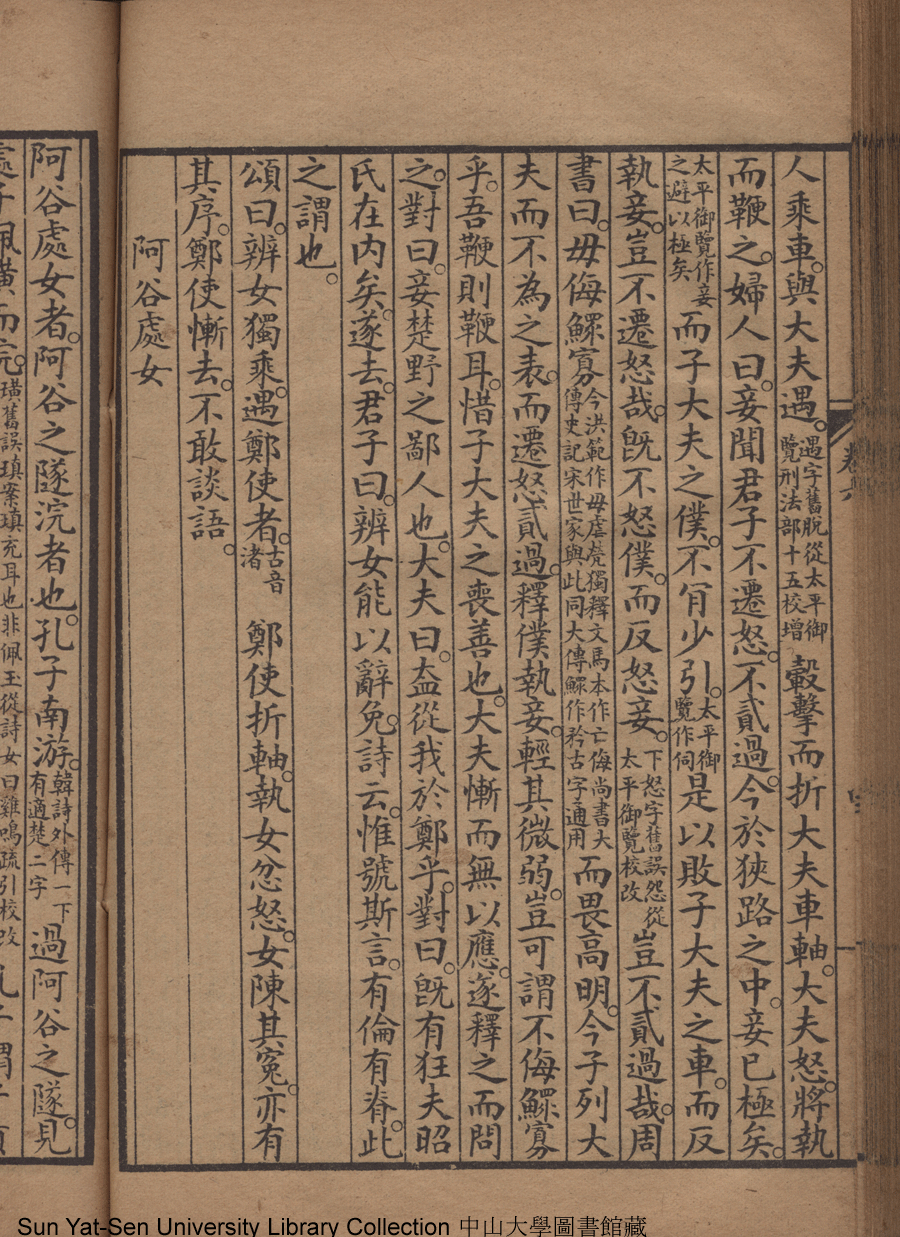 人乘車。與大夫遇。遇字舊脫從太平御覽刑法部十五校增轂擊而折大夫車軸。大夫怒。將執
而鞭之。婦人曰。妾聞君子不遷怒。不貳過。今於狹路之中。妾已極矣。
太平御覽作妾之避以極矣而子大夫之僕。不肎少引。太平御覽作伺是以敗子大夫之車。而反
執妾。豈不遷怒哉。旣不怒僕。而反怒妾。下怒字舊誤怨從太平御覽校改豈不貳過哉。周
書曰。毋侮鰥寡今洪範作毋虐煢獨釋文馬本作亡侮尚書大傳史記宋世家與此同大傳鰥作矜古字通用而畏高明。今子列大
夫而不為之表。而遷怒貳過。釋僕執妾。輕其微弱。豈可謂不侮鰥寡
乎。吾鞭則鞭耳。惜子大夫之喪善也。大夫慚而無以應。遂釋之而問
之。對曰。妾楚野之鄙人也。大夫曰。盍從我於鄭乎。對曰。旣有狂夫昭
氏在內矣。遂去。君子曰。辨女能以辭免。詩云。惟號斯言。有倫有脊。此
之謂也。
頌曰。辨女獨乘。遇鄭使者。古音渚 鄭使折軸。執女忿怒。女陳其冤。亦有
其序。鄭使慚去。不敢談語。
阿谷處女
阿谷處女者。阿谷之隧浣者也。孔子南游。韓詩外傳一下有適楚二字過阿谷之隧。見
處子佩璜而浣。璜舊誤瑱案瑱充耳也非佩玉從詩女曰雞鳴疏引校改孔子謂子貢
卷六